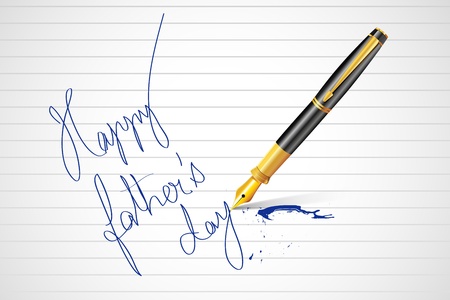 Happy
father's
day